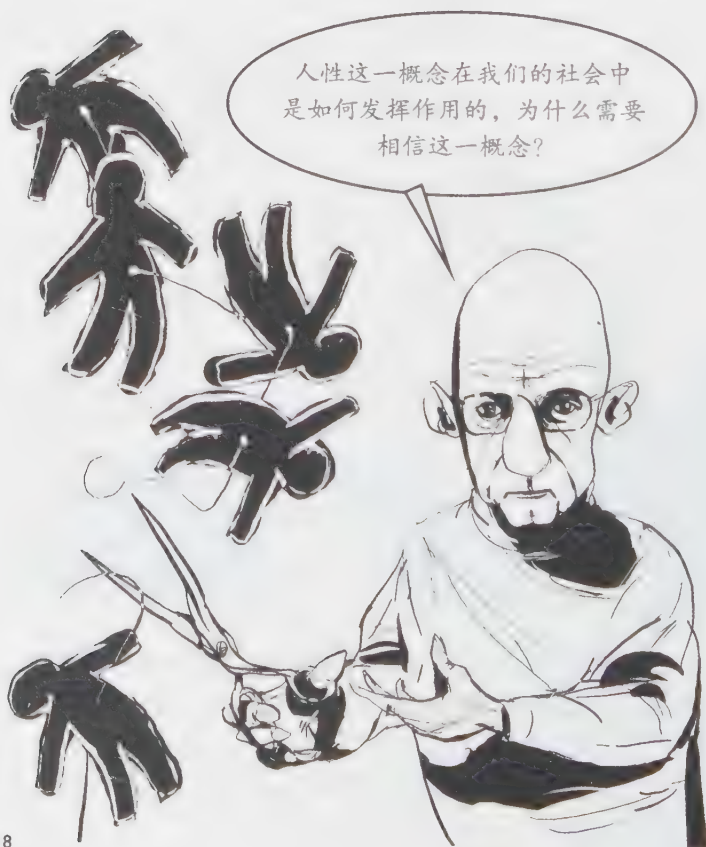 人性这一概念在我们的社会中
是如何发挥作用的，为什么需要
相信这一概念？
8